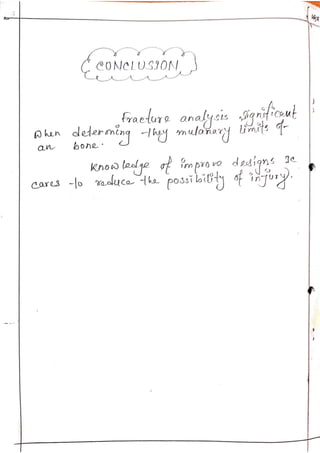 CONCLUSION
Fracture analysis significant
when determing they mulanary limits of
an bone.
Knowledge of improve designs
cares to reduce the possibility of injury).